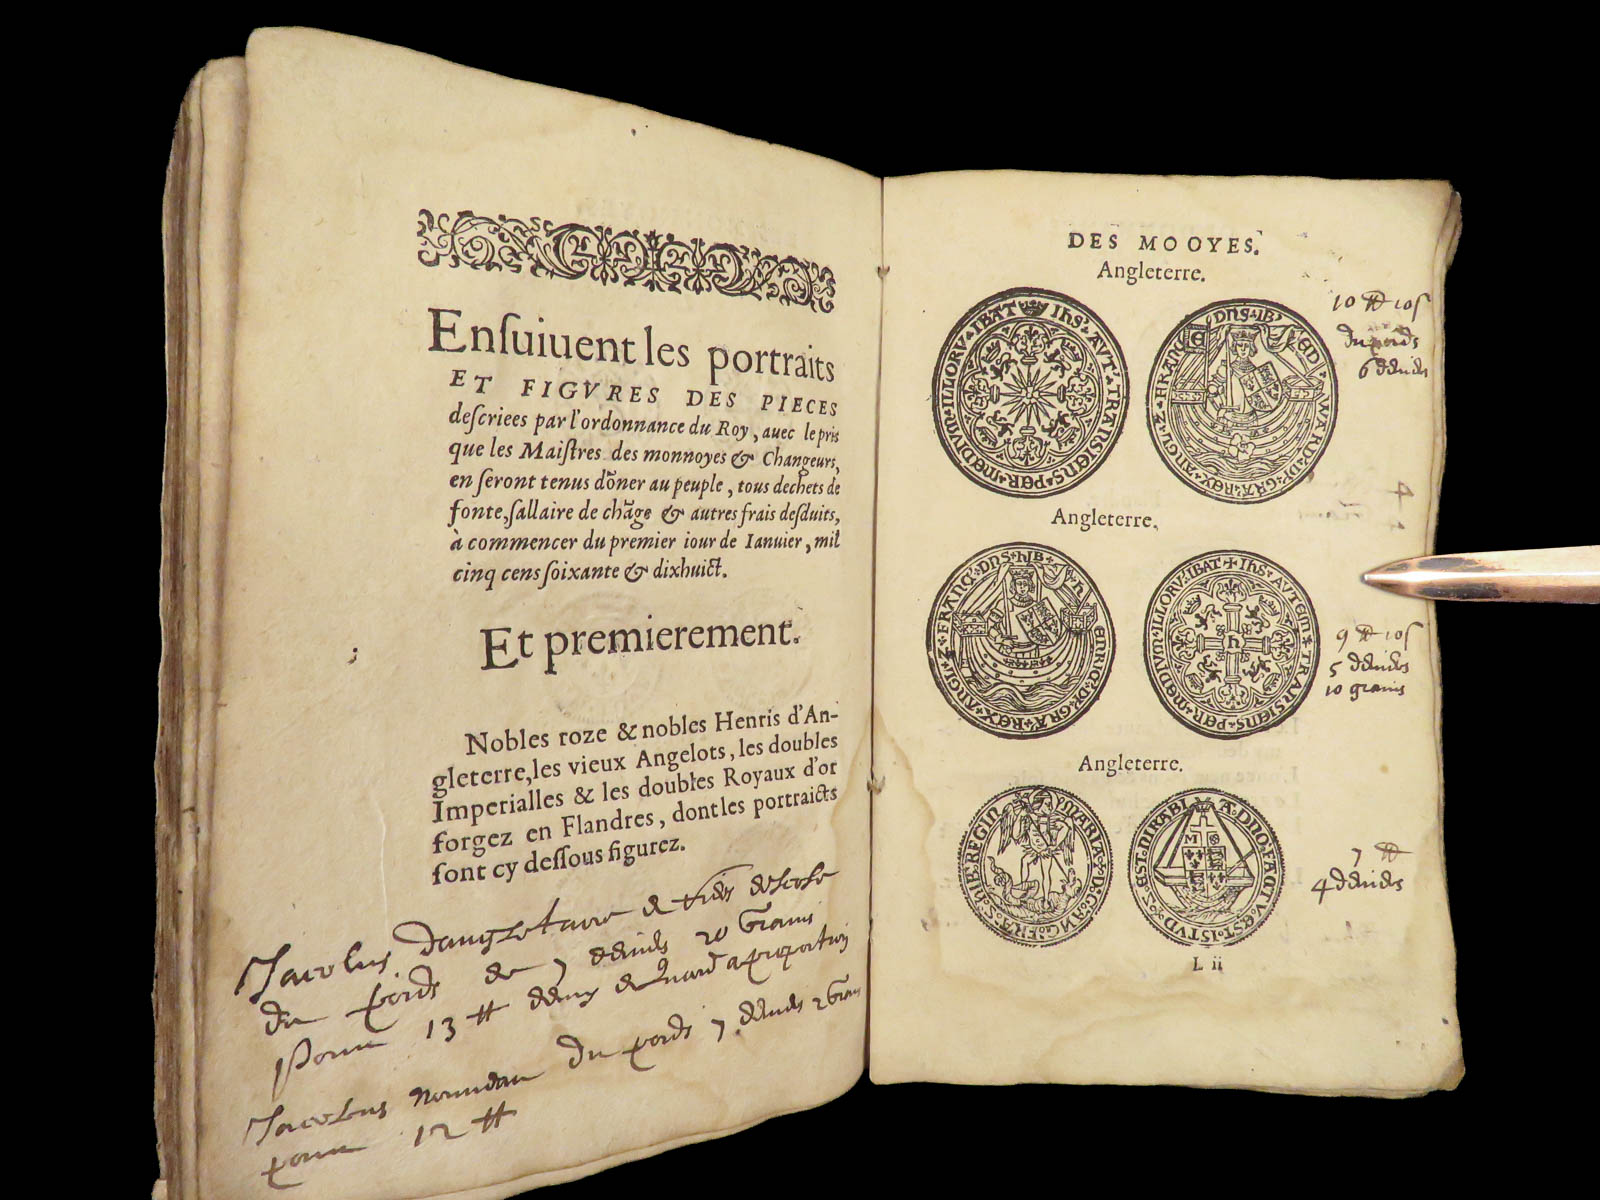 Enſuiuent les portraits
ET FIGVRES DES PIECES
deſcriees par l'ordonnance du Roy, auec le pris
que les Maiſtres des monnoyes & Changeurs,
en ſeront tenus dõner au peuple, tous dechets de
fonte, ſallaire de chãge & autres frais deſduits,
à commencer du premier iour de Ianuier, mil
cinq cens ſoixante & dixhuict.
Et premierement.
Nobles roze & nobles Henris d'An-
gleterre, les vieux Angelots, les doubles
Imperialles & les doubles Royaux d'or
forgez en Flandres, dont les portraicts
ſont cy deſſous figurez.
Jacobus dangletaire
du poids de 7 deniers 20 Grains
pour 13 ₶ a proportion
Jacobus nouueau du poids 7 deniers 2 Grains
pour 12 ₶
DES MOOYES.
Angleterre.
IhS' AVT' TRANSIENS PER MEDIVM ILLORV IBAT
EDWARD DI GRA REX ANGL Z FRANC DNS IB'
10 ₶ 10ſ
du poids
6 deniers
Angleterre.
HENRIC DI GRA REX ANGL Z FRANC DNS hIB
IhS AVTEM TRANSIENS PER MEDIVM ILLORV IBAT
9 ₶ 10ſ
5 deniers
10 grains
Angleterre.
MARIA D G ANG FRA Z hIB REGIN
A DNO FACTV EST ISTVD Z EST MIRABI
7 ₶
4 deniers
L ii